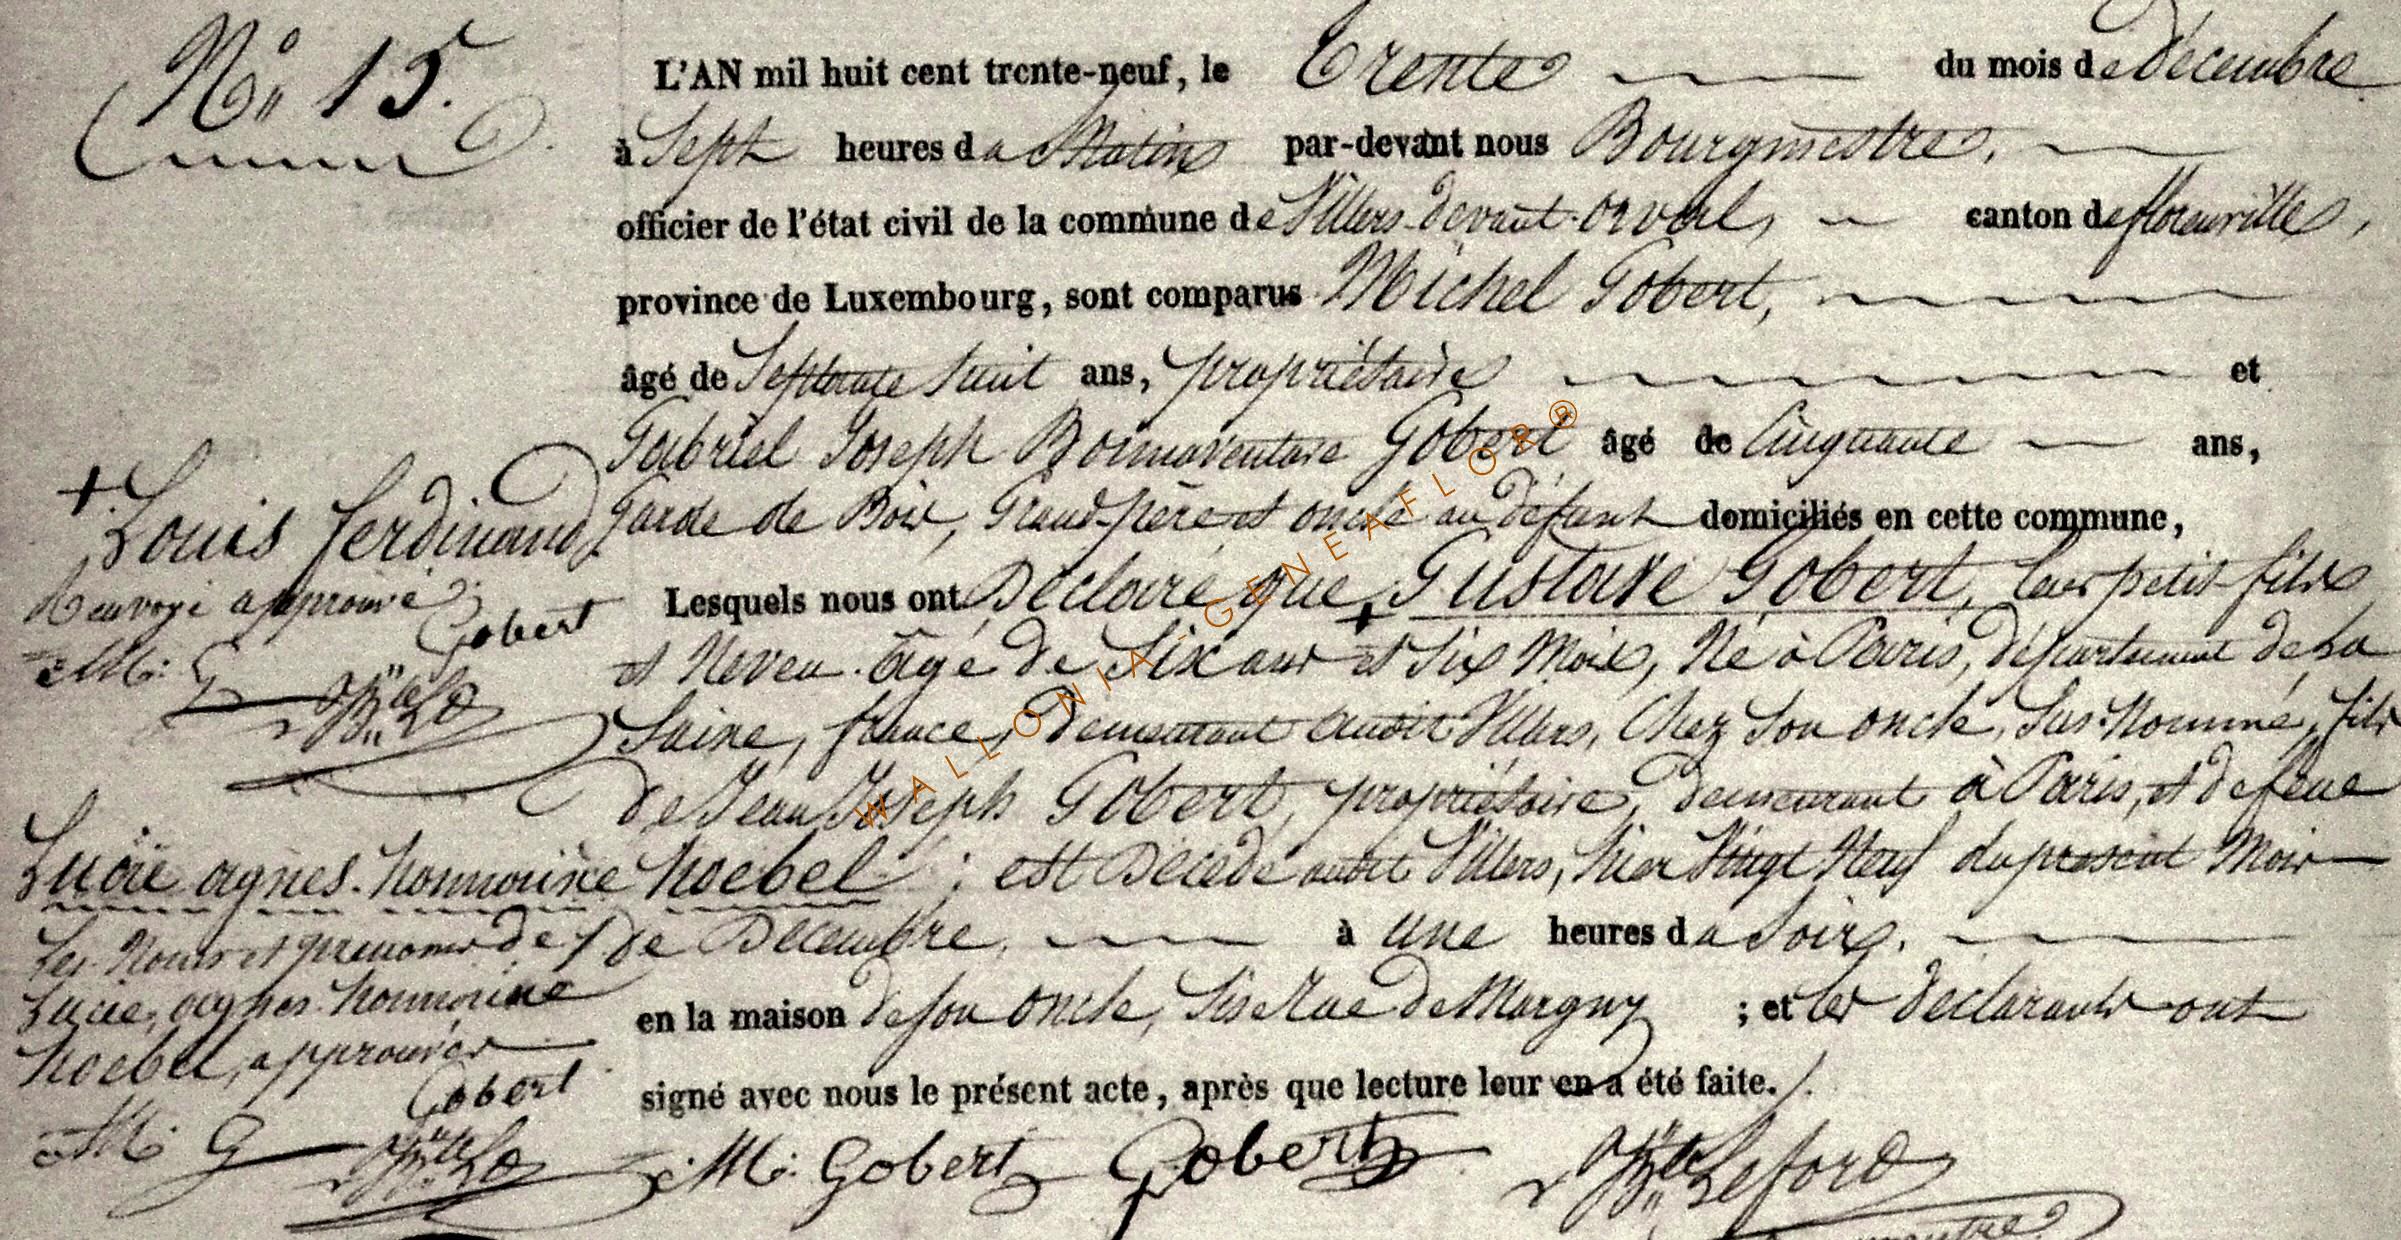 N° 15.
L'AN mil huit cent trente-neuf, le Trente du mois de décembre
à Sept heures du Matin par-devant nous Bourgmestre,
officier de l'état civil de la commune de Villers-devant-orval, canton de florenville,
province de Luxembourg, sont comparus Michel Gobert,
âgé de Septante huit ans, propriétaire et
Gabriel Joseph Bonnaventure Gobert âgé de Cinquante ans,
Garde de Bois, Grand-père et oncle au défunt domiciliés en cette commune,
Lesquels nous ont Déclaré que + Gustave Gobert, leur petit-fils
et Neveu âgé de Six ans et Six Mois, Né à Paris, département de La
Saine, france, demeurant audit Villers, Chez Son oncle, Sus-Nommé, fils
de Jean Joseph Gobert, propriétaire, demeurant à Paris, et de feue
Lucie agnes honnorine hoebel ; est Décédé audit Villers, hier Vingt Neuf du présent Mois
de Décembre, à une heures du Soir.
en la maison de son oncle, Sise Rue de Margny ; et les déclarants ont
signé avec nous le présent acte, après que lecture leur en a été faite.
M. Gobert Gobert Bte Leford
+ Louis ferdinand
Renvoyé approuvé
Gobert
M. G
Bte Lo
Les Noms et prenoms de
Lucie, agnes honnorine
hoebel, approuvés
Gobert
M. G
Bte Lo
WALLONIA-GENEAFLOR®